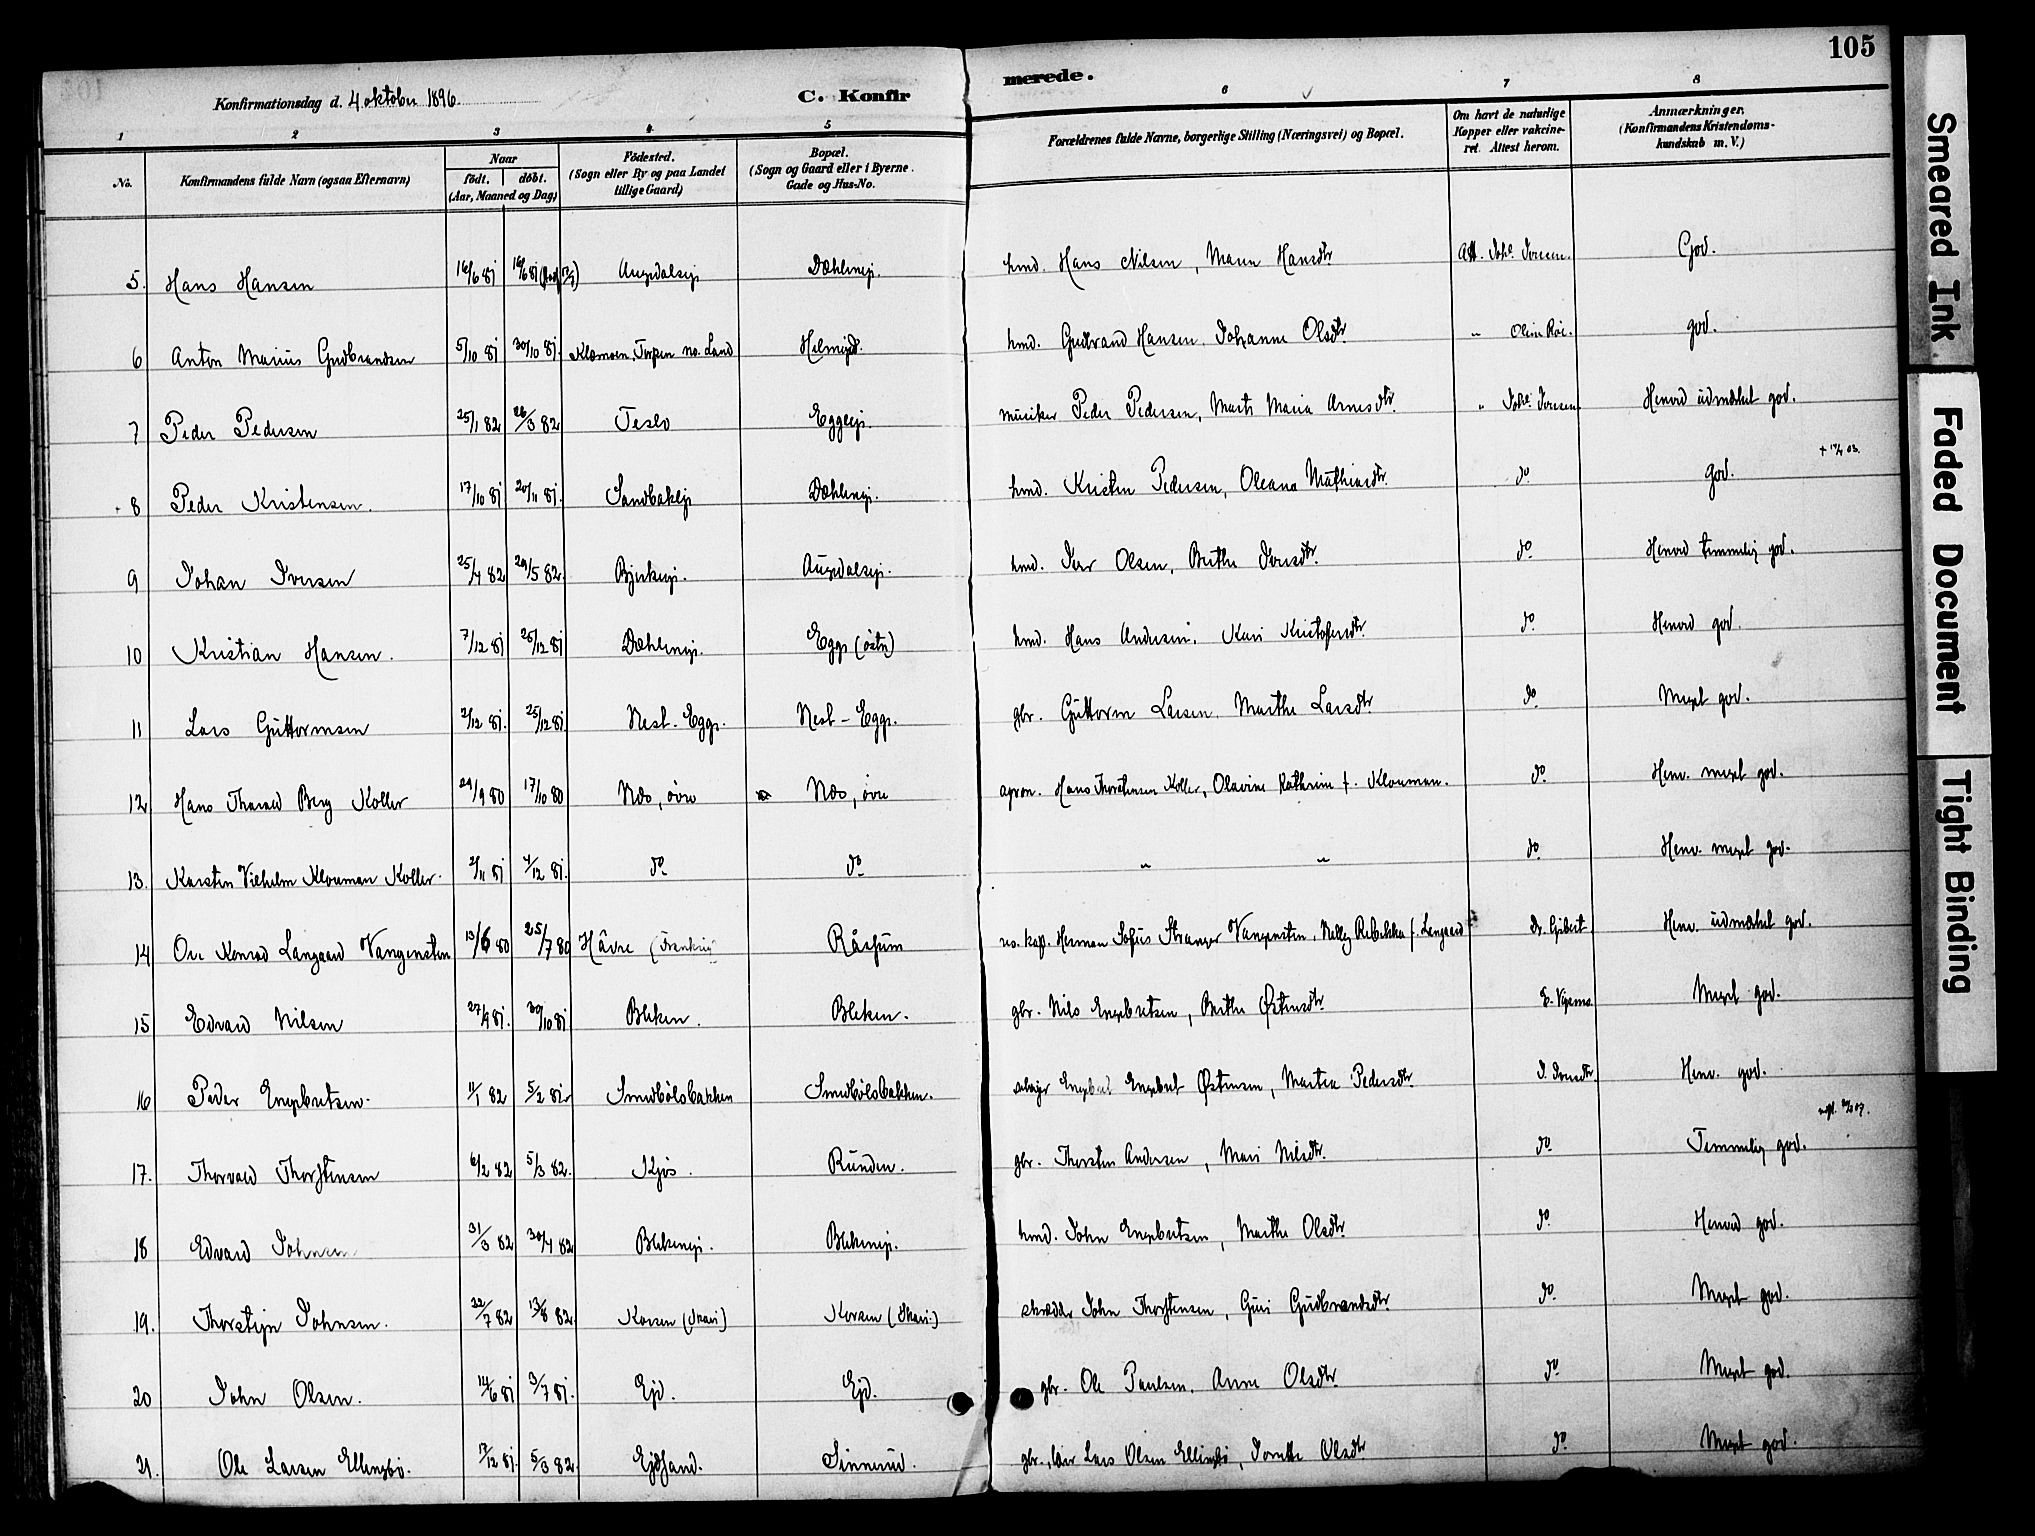 105
Konfirmationsdag d. 4 oktober 1896.
C. Konfir
merede.
1 2 3 4 5 6 7 8
No.
Konfirmandens fulde Navn (ogsaa Efternavn)
Naar
født. døbt.
(Aar, Maaned og Dag)
Fødested.
(Sogn eller By og paa Landet
tillige Gaard)
Bopæl.
(Sogn og Gaard eller i Byerne
Gade og Hus-No.
Forældrenes fulde Navne, borgerlige Stilling (Næringsvei) og Bopæl.
Om havt de naturlige
Kopper eller vakcine-
ret. Attest herom.
Anmærkninger,
(Konfirmandens Kristendoms-
kundskab m. V.)
5. Hans Hansen 16/6 81 Dæhlenejr. hmd. Hans Nilsen, Maren Hansdtr Att. Joh. Iversen. God.
6 Anton Marius Gudbrandsen 5/10 81 30/10 81 Klæmoen, Torpen no. Land hmd. Gudbrand Hansen, Johanne Olsdtr. " god.
7 Peder Pedersen 25/1 82 26/3 82 Teslo Eggeejr. musiker Peder Pedersen, Marte Maria Arnesdtr. " Henved udmærket god.
8 Peder Kristensen. 17/10 81 20/11 81. Sandbakejr Dæhlenejr. hmd. Kristen Pedersen, Oleana Mathiasdtr. do god.
9 Johan Iversen 25/4 82 29/5 82. Bjerkeejr. hmd. Iver Olsen, Berthe Iversdtr. do Henved temmelig god.
10 Kristian Hansen. 7/12 81 26/12 81 Dæhlenejr. Egge (østre) hmd. Hans Andersen, Kari Kristofersdtr. do Henved god.
11 Lars Guttormsen 2/12 81. 25/12 81. Nest-Egge. Nest-Egge. gbr. Guttorm Larsen, Marthe Larsdtr do Meget god.
12 Hans Tharald Berg Koller 29/9 80 17/10 80 Næs, øvre Næs, øvre agron. Hans Thorstensen Koller, Olavine Kathrine f. Klouman. do Henv. meget god.
13. Karsten Vilhelm Klouman Koller. 2/11 81 4/12 81. do do " " do Henv. meget god.
14 Ove Konrad Langaard Vangensten 13/6 80 25/7 80 Håvre (Frankrig) res. kap. Herman Sofus Stranger Vangensten, Nelly Rebekka f. Langaard Henv. udmærket god.
15 Edvard Nilsen 27/9 81. 30/10 81 Bleken. Bleken. gbr. Nils Engebretsen, Berthe Østensdtr Meget god.
16 Peder Engebretsen. 11/1 82 5/2 82 Smedbølsbakken Smedbølsbakken. Engebret Østensen, Martea Pedersdtr I. Iversdtr. Henv. god.
17. Thorvald Thorstensen 6/2 82 5/3 82. Kjøs. Runden. gbr. Thorsten Andersen, Mari Nilsdtr. do Temmelig god.
18 Edvard Johnsen 31/3 82 30/4 82 Blekenejr. Blekenejr. hmd. John Engebretsen, Marthe Olsdtr do Henved god.
19. Thorstejn Johnsen. 22/7 82 13/8 82. Korsen (Skari) Korsen (Skari) skrædder John Thorstensen, Guri Gudbrandsdtr do Meget god.
20 John Olsen. 14/6 81 3/7 81. Ejd. Ejd. gbr. Ole Paulsen, Anne Olsdtr. do Meget god.
21. Ole Larsen Ellingbø. 12/12 81. 5/3 82. Ejdsand. Sinnerud. gbr., Lars Olsen Ellingbø, Dorthe Olsdtr do Meget god.
Smeared Ink
Faded Document
Tight Binding